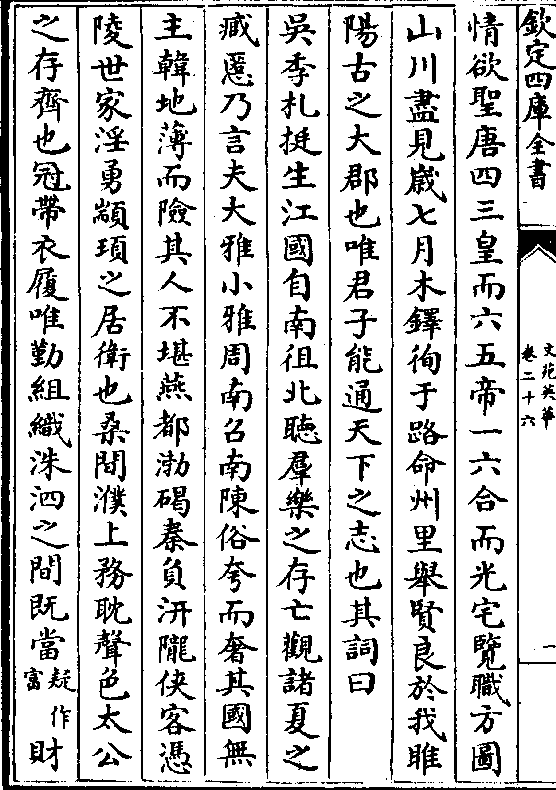 欽定四庫全書
文苑英華
卷二十六
一
情欲聖唐四三皇而六五帝一六合而光宅覽職方圖
山川盡見嵗七月木鐸徇于路命州里舉賢良於我睢
陽古之大郡也唯君子能通天下之志也其詞曰
吳季札挺生江國自南徂北聴羣樂之存亡觀諸夏之
臧慝乃言夫大雅小雅周南召南陳俗夸而奢其國無
主韓地薄而險其人不堪燕都渤碣秦負汧隴俠客憑
陵世家淫勇顓頊之居衛也桑間濮上務耽聲色太公
之存齊也冠帶衣履唯勤組織洙泗之間既當疑作富財